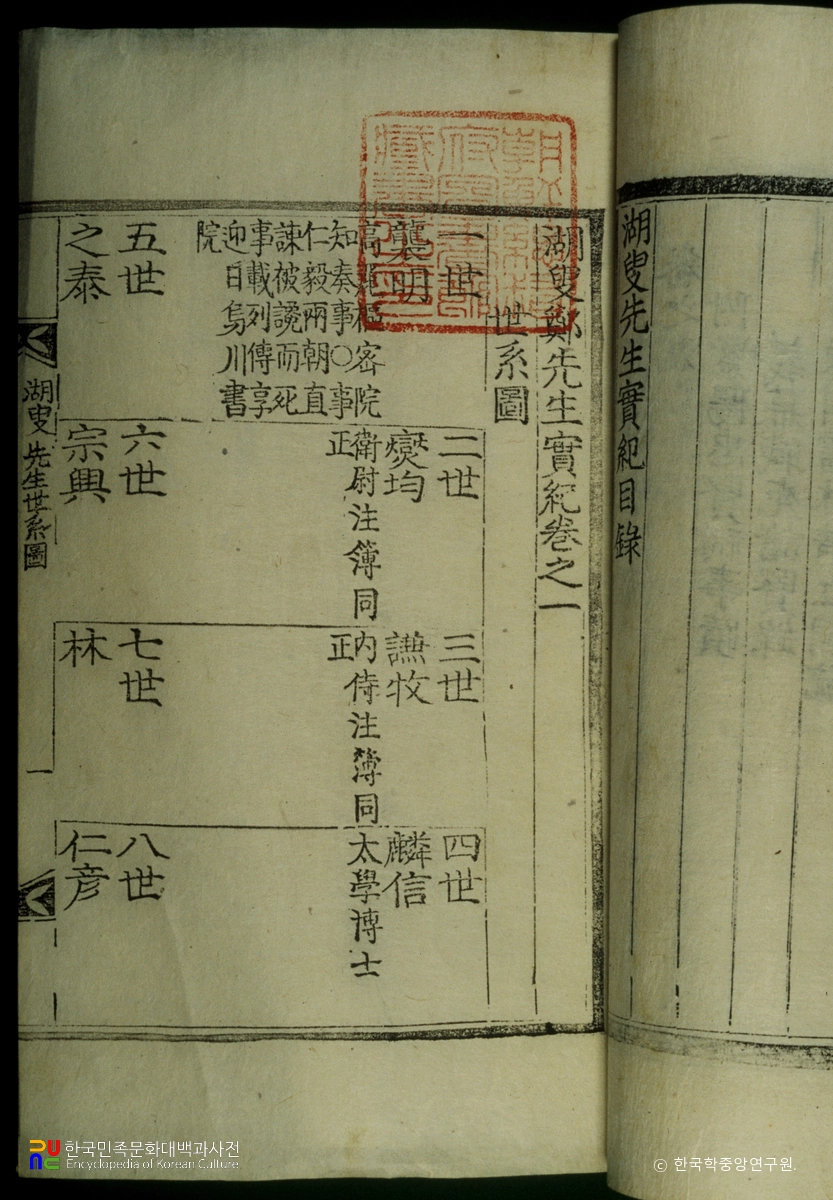 湖叟先生實紀目錄
湖叟鄭先生實紀卷之一
世系圖
一世
襲明
高麗樞密院
知奏事○事
仁毅兩朝直
諫被讒而死
事載列傳享
迎日烏川書
院
二世
燮均
衛尉注簿同
正
三世
讌牧
內侍注簿同
正
四世
麟信
太學博士
五世
之泰
六世
宗興
七世
林
八世
仁彦
湖叟先生世系圖
一
한국민족문화대백과사전
Encyclopedia of Korean Culture
ⓒ 한국학중앙연구원.